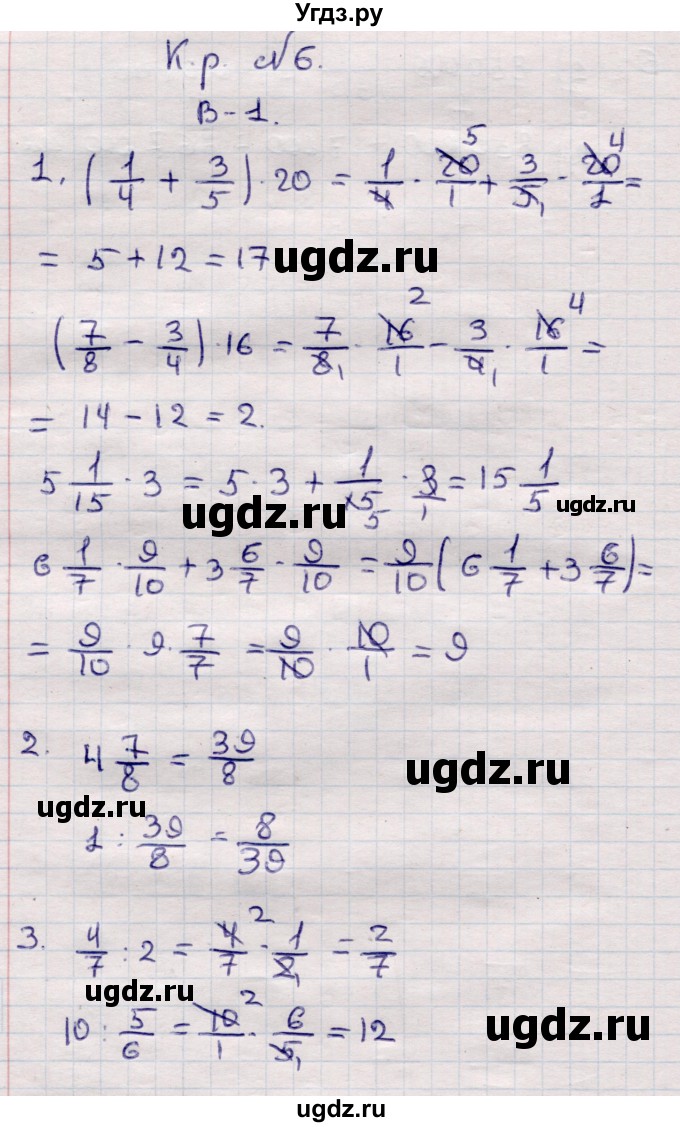 Угдз.ру
К.р. №6.
В-1.
1. (1/4 + 3/5) · 20 = 1/4 · 20/1 + 3/5 · 20/1 =
5 4
1
= 5 + 12 = 17
ugdz.ru
(7/8 - 3/4) · 16 = 7/8 · 16/1 - 3/4 · 16/1 =
2 4
1 1
= 14 - 12 = 2.
5 1/15 · 3 = 5 · 3 + 1/15 · 3/1 = 15 1/5
5
ugdz.ru
ugdz.ru
6 1/7 · 9/10 + 3 6/7 · 9/10 = 9/10 (6 1/7 + 3 6/7) =
= 9/10 · 9 · 7/7 = 9/10 · 10/1 = 9
2. 4 7/8 = 39/8
ugdz.ru
ugdz.ru
1 : 39/8 = 8/39
3. 4/7 : 2 = 4/7 · 1/2 = 2/7
2
1
ugdz.ru
10 : 5/6 = 10/1 · 6/5 = 12
2
1
ugdz.ru
ugdz.ru